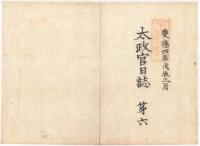 慶應四年戊辰三月
太政官日誌 第六